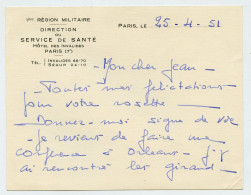 1ère RÉGION MILITAIRE
DIRECTION
DU
SERVICE DE SANTÉ
HÔTEL DES INVALIDES
PARIS (7e)
TÉL. INVALIDES 66-70
SÉGUR 26-10
PARIS, LE 25-4-51
Mon cher Jean -
Toutes mes félicitations
pour votre rosette -
Donnez-moi signe de vie
- Je reviens de faire une
conférence à Orléans - j'y
ai rencontré les Girard -